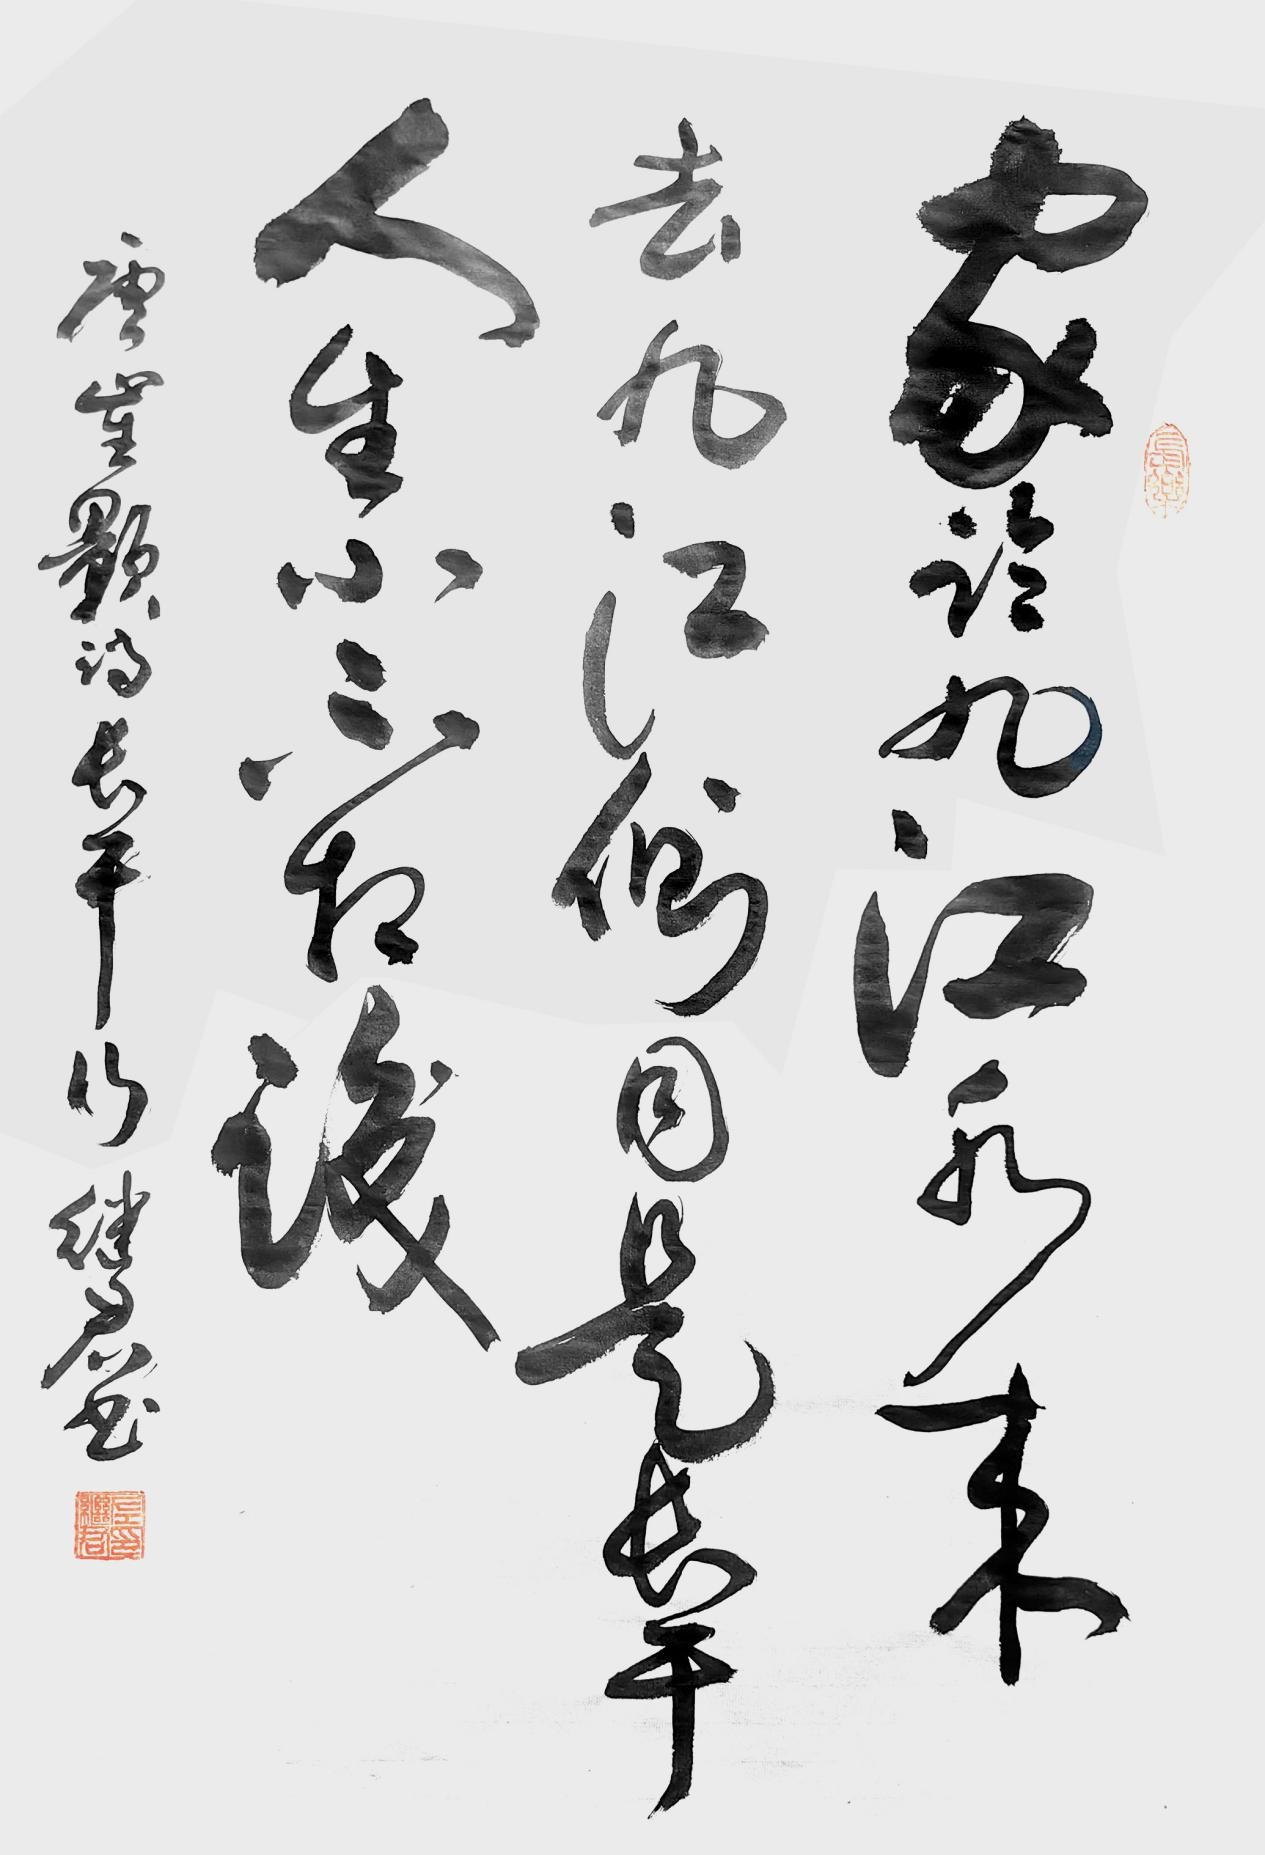 家臨九江水来
去九江側同是長干
人生小不相識
唐崔顥詩長干行 继君书